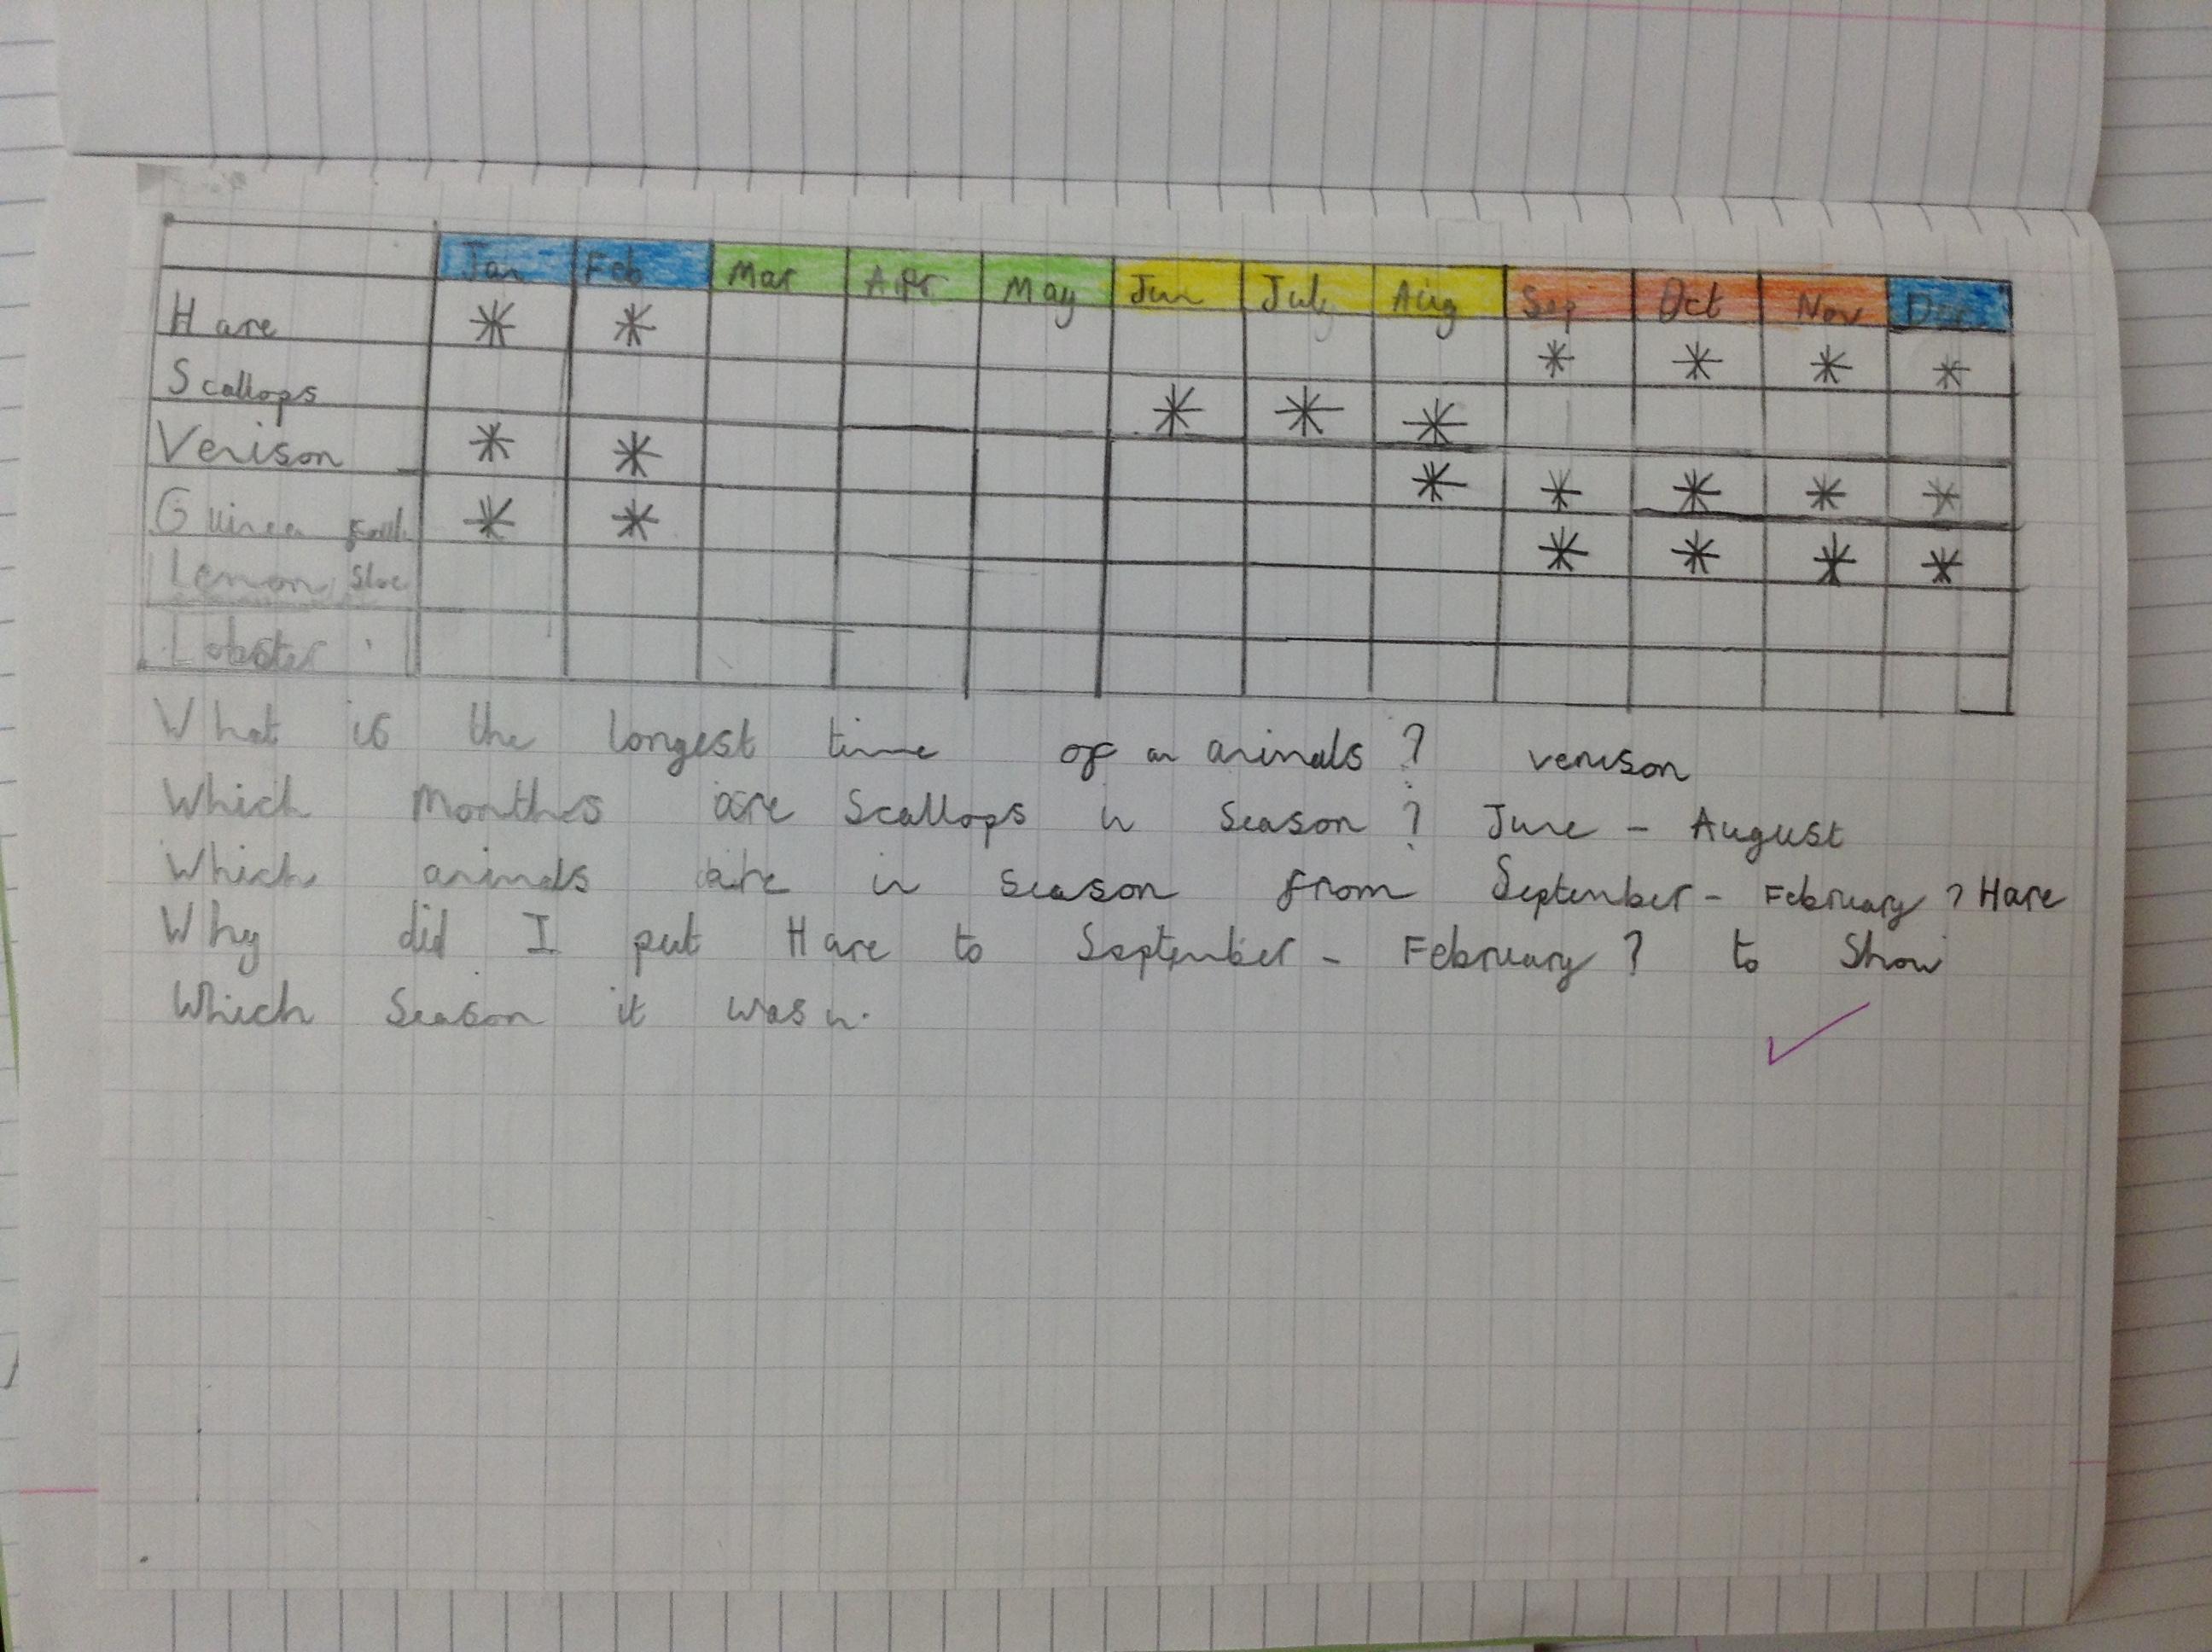 Jan Feb Mar Apr May Jun July Aug Sep Oct Nov Dec
Hare * * * * * *
Scallops * * *
Venison * * * * * * *
Guinea * * * * * *
Lemon
Lobster
What is the longest time of an animals? venison
Which months are Scallops in Season? June - August
Which animals are in season from September - February? Hare
Why did I put Hare to September - February? to Show
Which Season it was in.